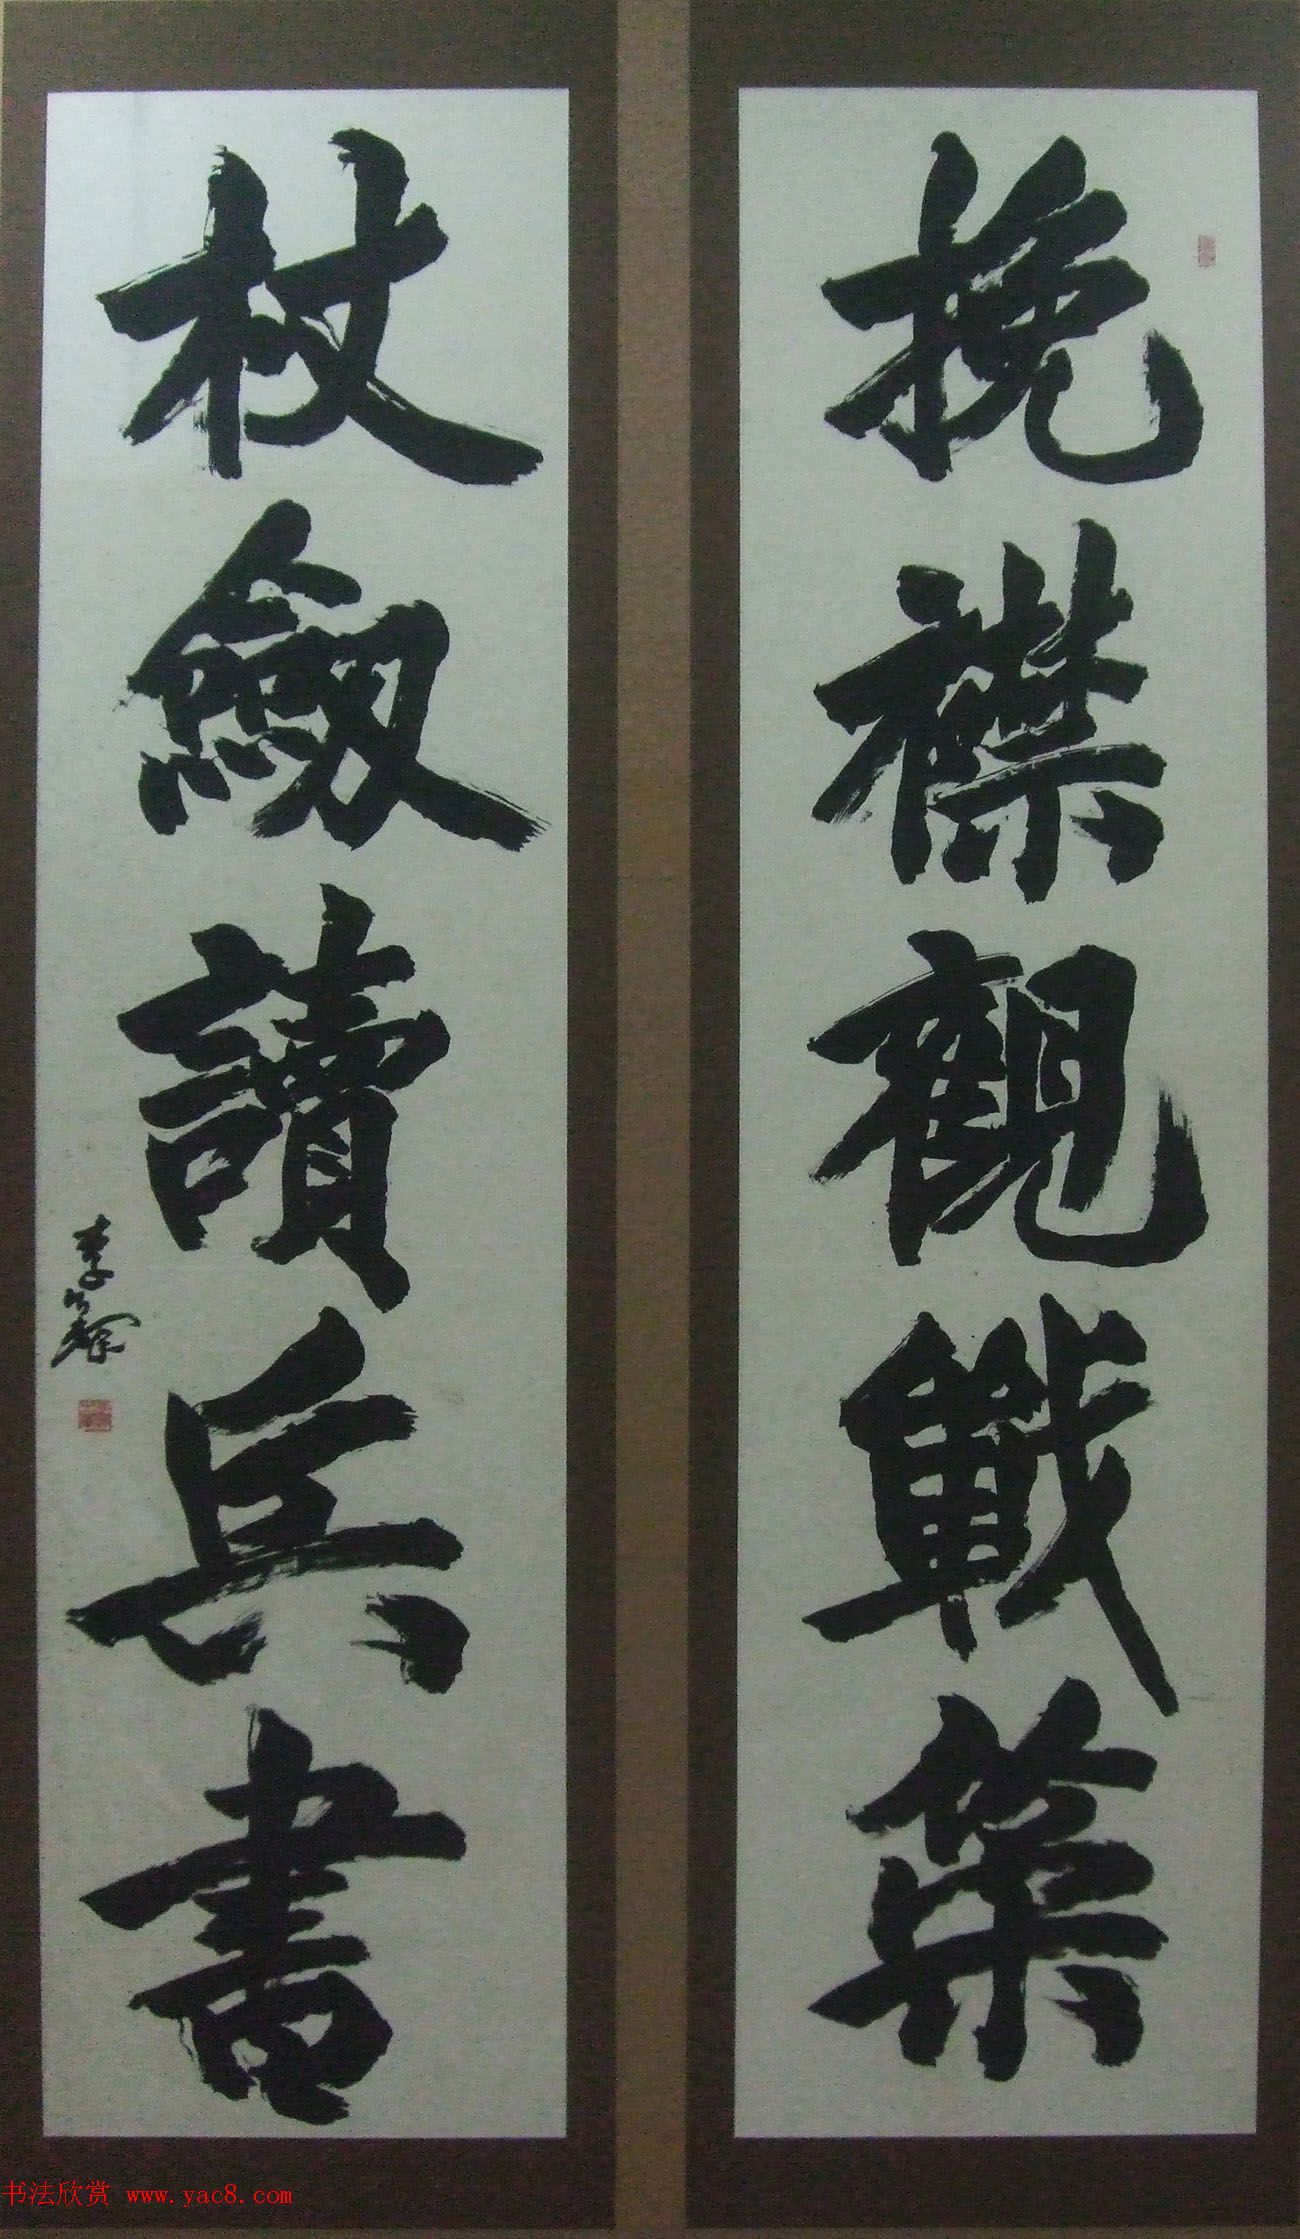 挽襟觀戰策
杖劔讀兵書
李
书法欣赏 www.yac8.com